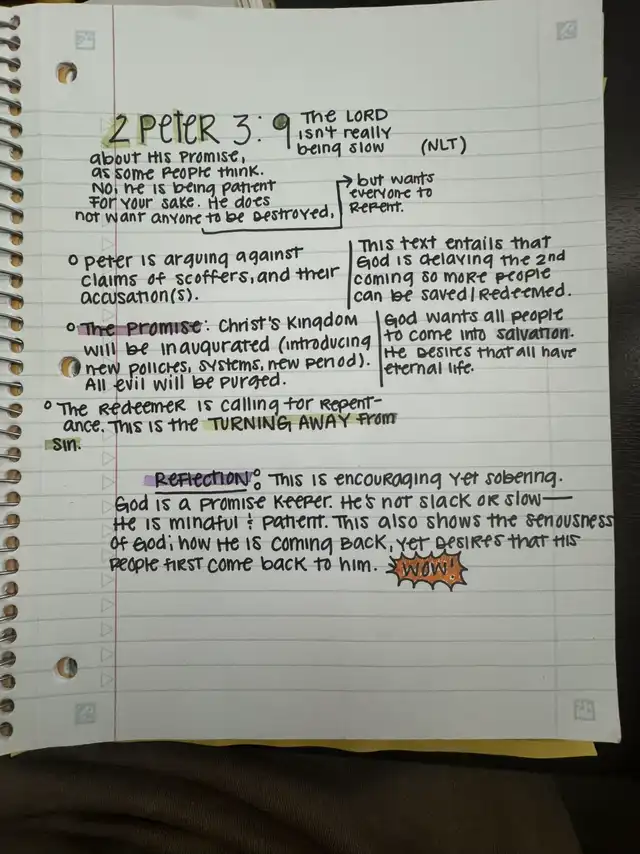 2 Peter 3:9 The LORD
isn't really
being slow (NLT)
about His promise,
as some people think.
No, he is being patient
for your sake. He does
not want anyone to be destroyed,
but wants
everyone to
repent.
Peter is arguing against
claims of scoffers, and their
accusation(s).
This text entails that
God is delaying the 2nd
coming so more people
can be saved/redeemed.
The Promise: Christ's Kingdom
will be inaugurated (introducing
new policies, systems, new period).
All evil will be purged.
God wants all people
to come into salvation.
He desires that all have
eternal life.
The Redeemer is calling for repent-
ance. This is the TURNING AWAY from
sin.
Reflection: This is encouraging yet sobering.
God is a promise keeper. He's not slack or slow—
He is mindful & patient. This also shows the seriousness
of God; how He is coming back, yet desires that His
people FIRST come back to him. WOW!